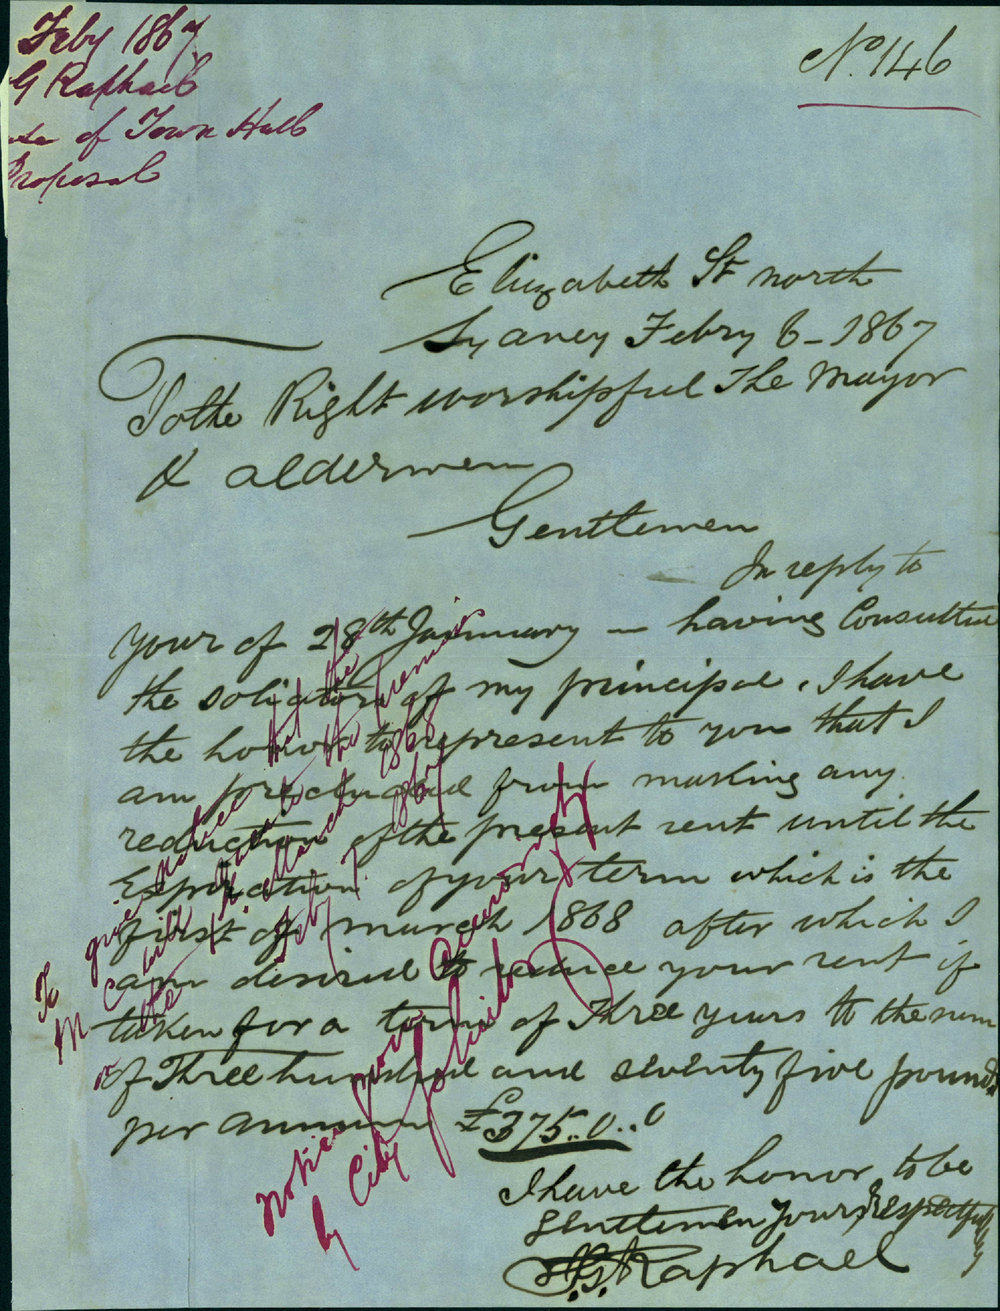 Feby 1867
G Raphael
of Town Hall
Proposal
No. 146
Elizabeth St north
Sydney Febry 6 - 1867
To the Right worshipful The Mayor
& aldermen
Gentlemen
In reply to
your of 28th January - having Consulted
the solicitors of my principal, I have
the honor to represent to you that I
am precluded from making any
reduction of the present rent until the
Expiration of your term which is the
first of march 1868 after which I
am desired to reduce your rent if
taken for a term of Three years to the sum
of Three hundred and seventy five pounds
per annum £375..0..0
I have the honor to be
Gentlemen Yours Respectfully
Raphael
To give notice that the
will the premises
the 1. March 1868
Feby 7. 1867
notice
by City Solicitor